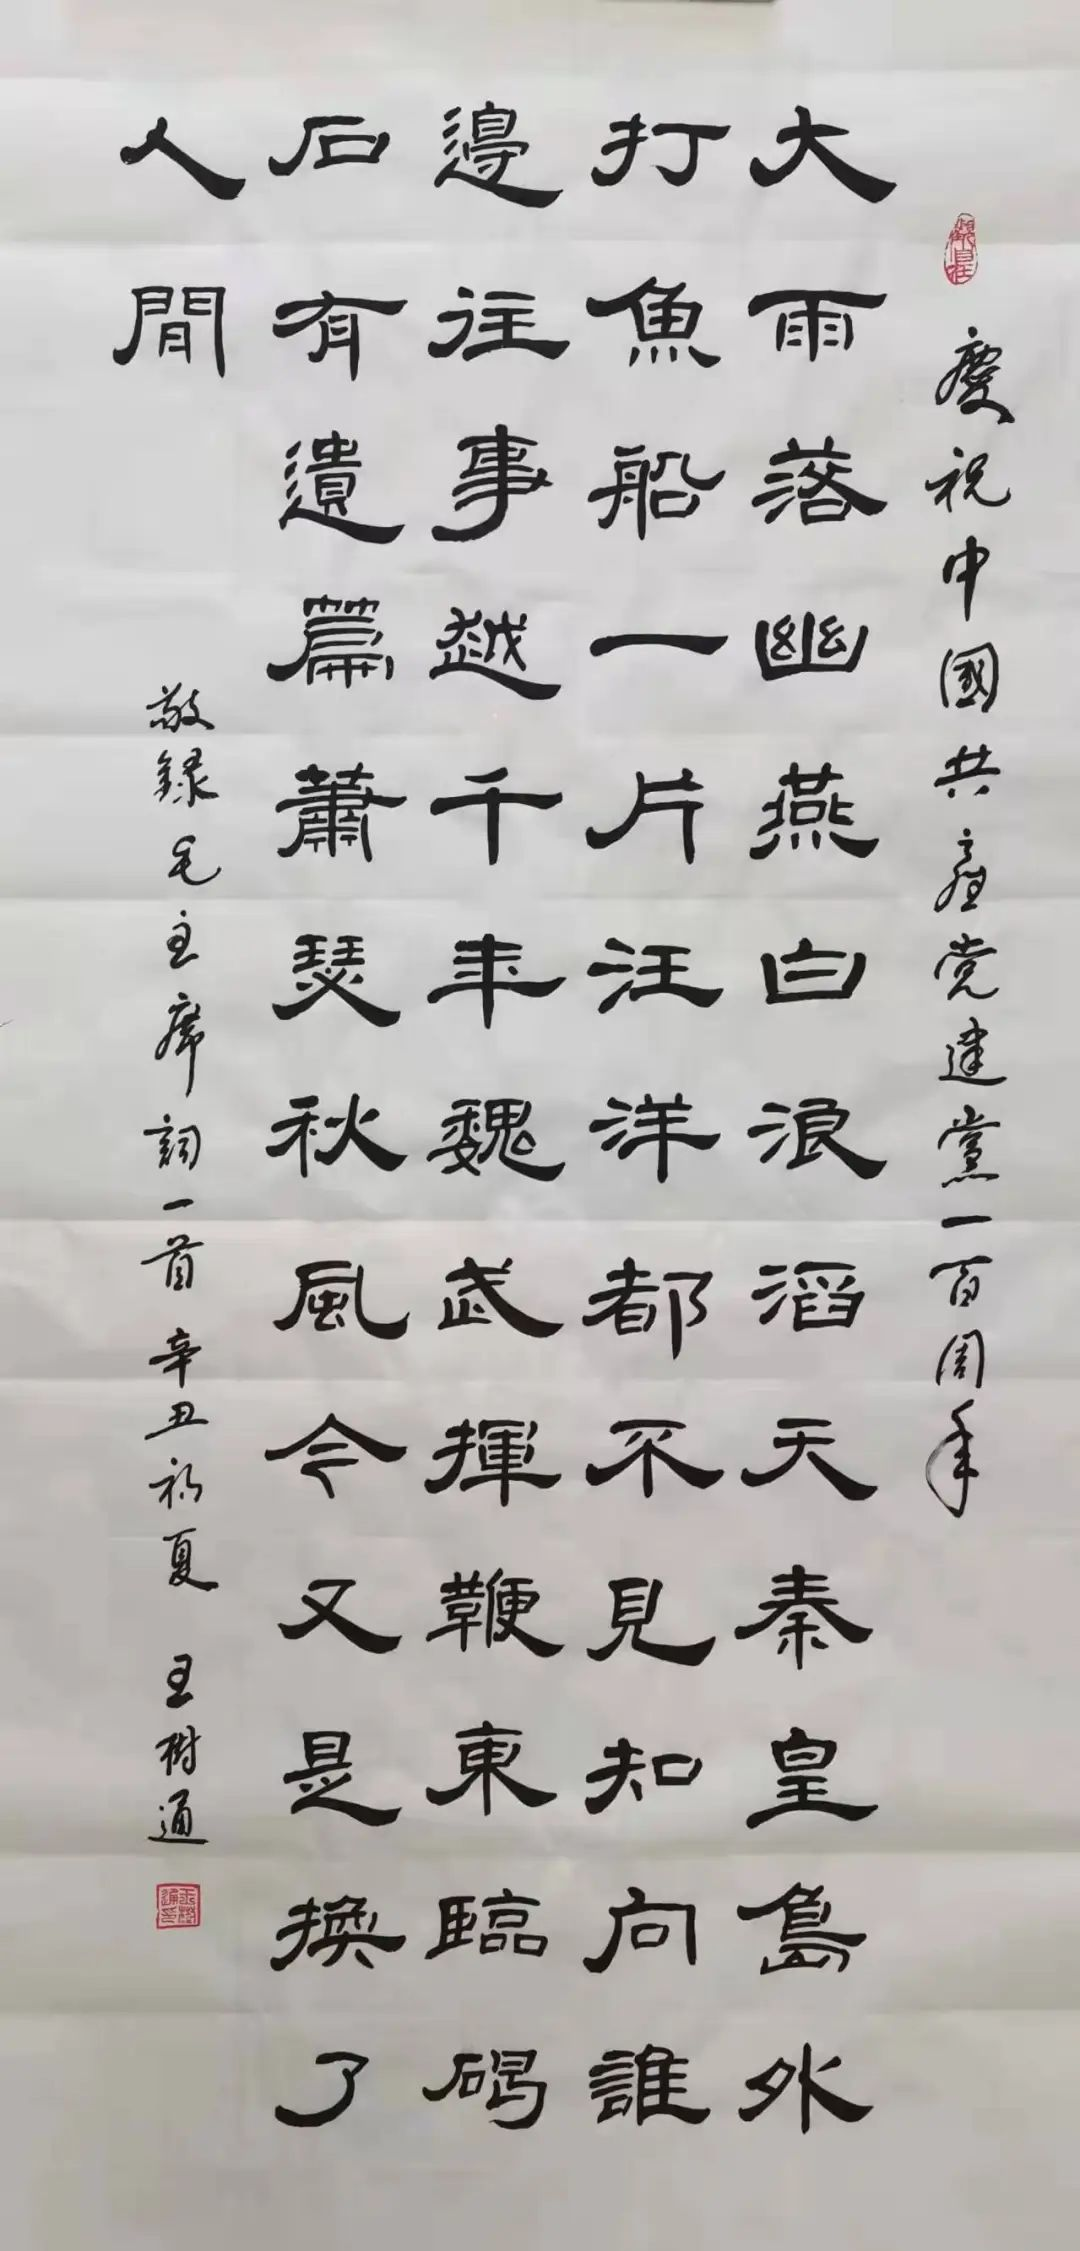 慶祝中國共產党建黨一百周年
大雨落幽燕白浪滔天秦皇島外
打魚船一片汪洋都不見知向誰
邊往事越千年魏武揮鞭東臨碣
石有遺篇蕭瑟秋風今又是換了
人間
敬録毛主席詞一首辛丑初夏 王樹通